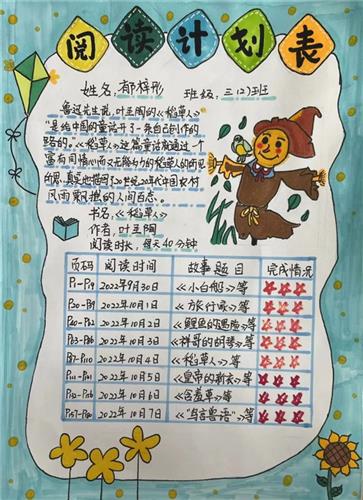 阅读计划表
姓名:郁梓彤 班级:三(2)班
鲁迅先生说,叶圣陶的《稻草人》
"是给中国的童话开了一条自己创作的
路的。《稻草人》这篇童话通过一个
富有同情心而又无能为力的稻草人的所见
所思,真实地描写了20世纪20年代中国农村
风雨飘摇的人间百态。
书名:《稻草人》
作者:叶圣陶
阅读时长:每天40分钟
页码 阅读时间 故事题目 完成情况
P1-P19 2022年9月30日 《小白船》等
2022年10月1日 《旅行家》等
2022年10月2日 《鲤鱼的遇险》等
2022年10月3日 《祥哥的胡琴》等
2022年10月4日 《稻草人》等
2022年10月5日 《皇帝的新衣》等
2022年10月6日 《含羞草》等
2022年10月7日 《"鸟言兽语"》等